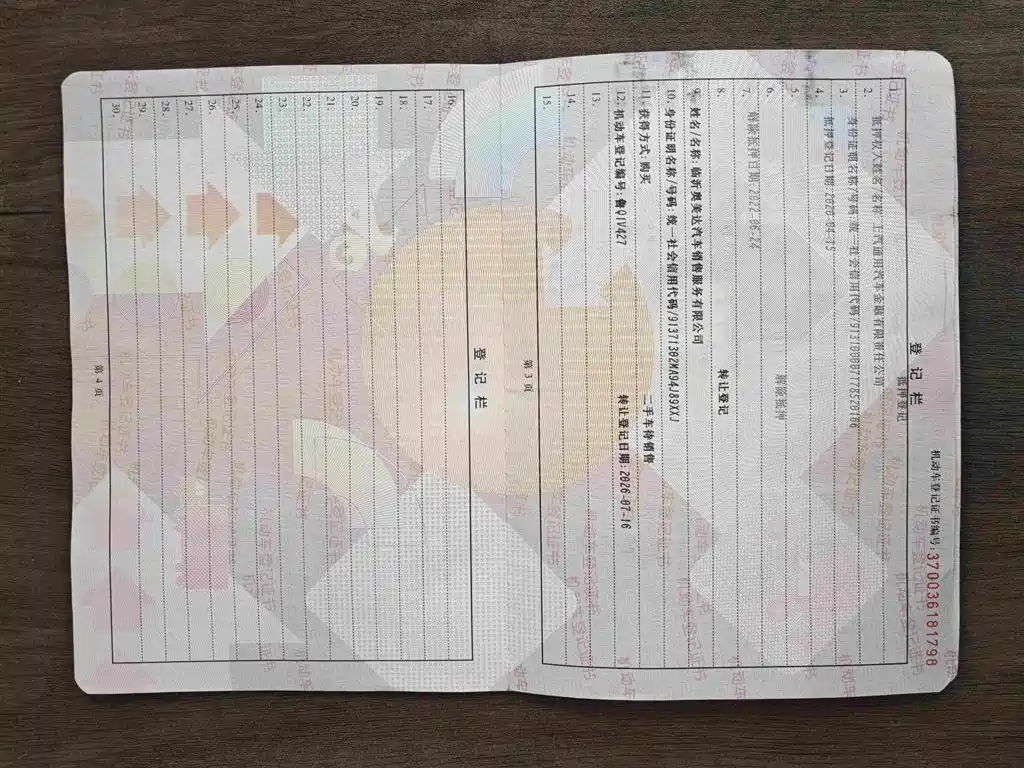 登记栏
机动车登记证书编号:370036181798
1. 抵押登记
2. 抵押权人姓名/名称:上汽通用汽车金融有限责任公司
3. 身份证明名称/号码:统一社会信用代码/913100007178528166
4. 抵押登记日期:2020-04-15
5.
6. 解除抵押
7. 解除抵押日期:2022-06-24
8. 转让登记
9. 姓名/名称:临沂奥美达汽车销售服务有限公司
10. 身份证明名称/号码:统一社会信用代码/91371302MA94J89XXJ
11. 获得方式:购买 二手车待销售
12. 机动车登记编号:鲁Q1V427 转让登记日期:2026-07-16
13.
14.
15.
第 3 页
登记栏
16.
17.
18.
19.
20.
21.
22.
23.
24.
25.
26.
27.
28.
29.
30.
第 4 页